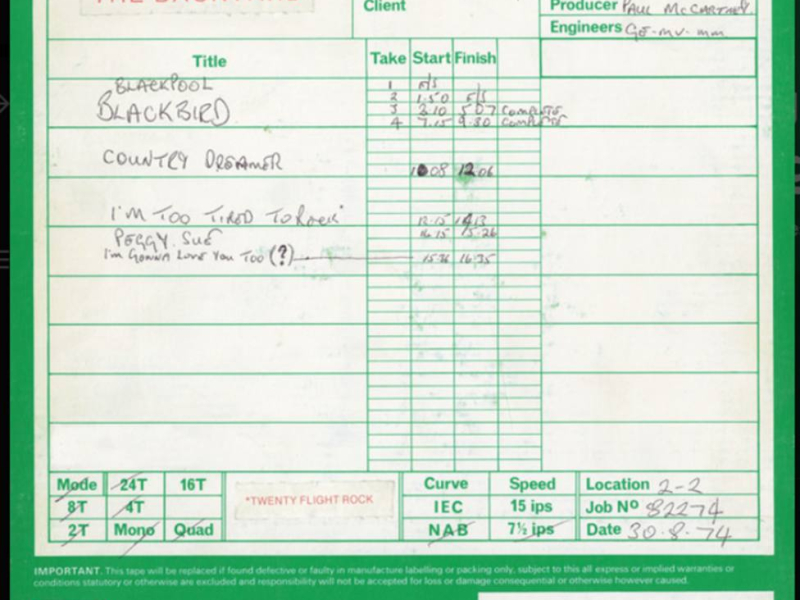 THE BACKYARD
Client
Producer PAUL McCARTNEY
Engineers GE-MV-mm
Title Take Start Finish
BLACKPOOL 1 F/S
2 1.50 F/S
BLACKBIRD 3 2.10 5.07 COMPLETE
4 7.15 9.30 COMPLETE
COUNTRY DREAMER 10 08 12.06
I'M TOO TIRED TO Rock 12.15 14.13
PEGGY SUE 14.15 15.26
I'm GONNA LOVE YOU TOO (?) 15.26 16.35
Mode 24T 16T
8T 4T
2T Mono Quad
*TWENTY FLIGHT ROCK
Curve Speed
IEC 15 ips
NAB 7½ ips
Location 2-2
Job Nº 82274
Date 30.8.74
IMPORTANT. This tape will be replaced if found defective or faulty in manufacture labelling or packing only, subject to this all express or implied warranties or
conditions statutory or otherwise are excluded and responsibility will not be accepted for loss or damage consequential or otherwise however caused.